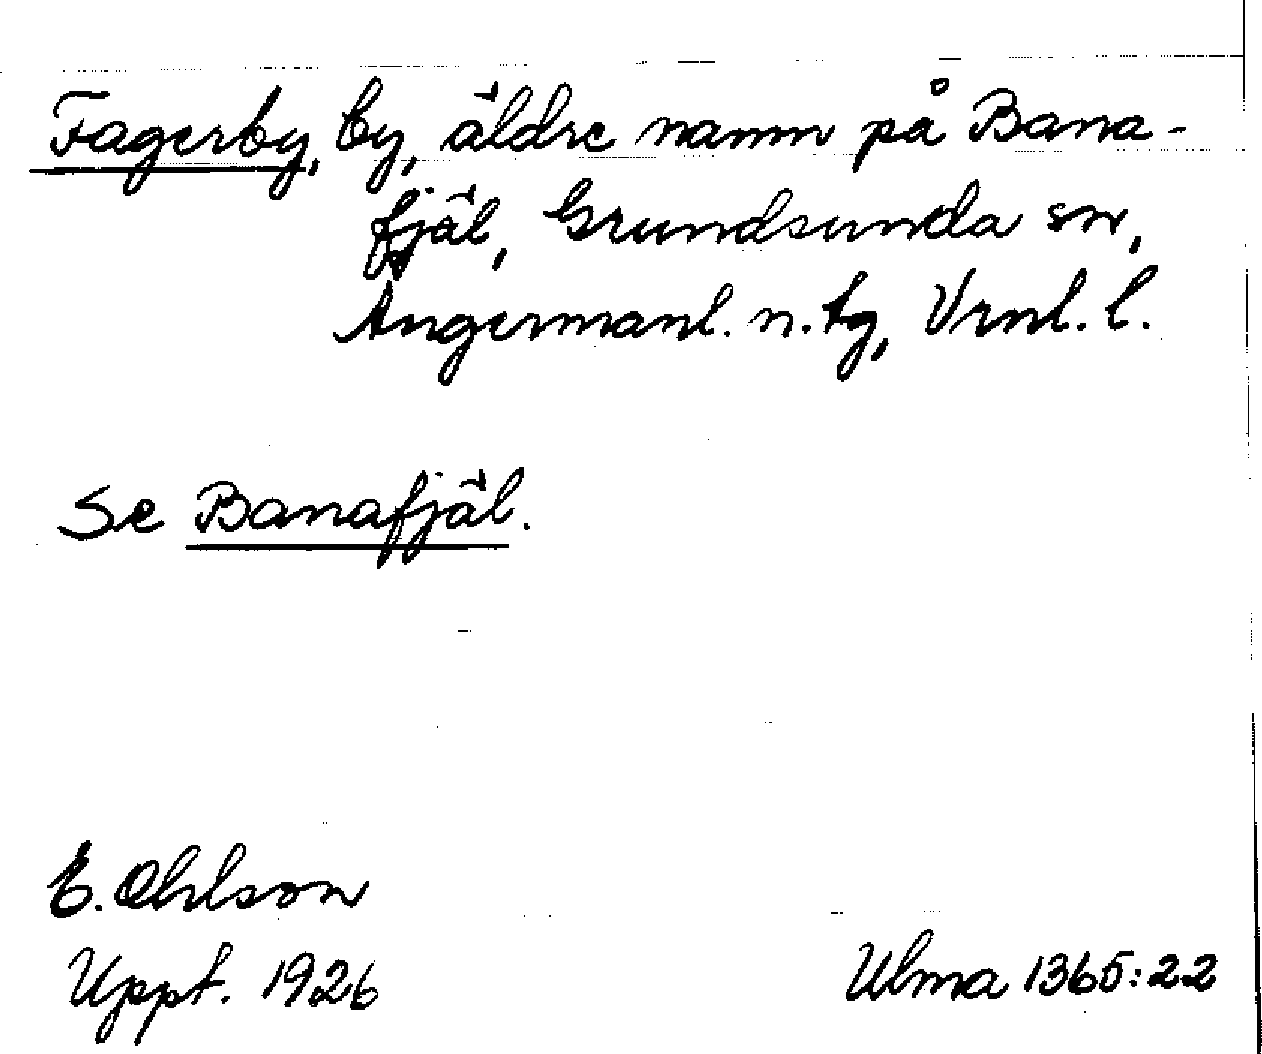 Fagerby, by, äldre namn på Bana-
fjäl, Grundsunda sn,
Ångermanl. n. tg, Vrnl. l.
Se Banafjäl.
E. Ohlson
Uppt. 1926
Ulma 1365:22